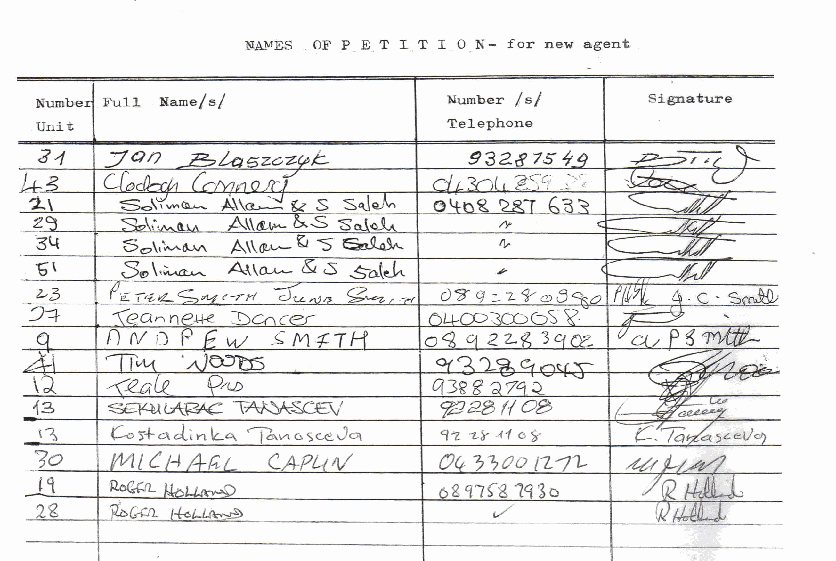 NAMES OF P E T I T I O N- for new agent
Number Unit Full Name/s/ Number /s/ Telephone Signature
31 Jan Blaszczyk 93287549
43 Clodagh
21 Soliman Allam & S Saleh 0408 287 633
29 Soliman Allam & S Saleh "
34 Soliman Allam & S Saleh "
51 Soliman Allam & S Saleh
23 PETER SMITH JUNE SMITH J. C. Smith
27 Jeannette Dancer 0400300058
9 ANDREW SMITH 0892283902 a P Smith
41 TIM WOODS 93289045
12 Teale 93882792
13 SEKULARAC TANASCEV 92281108
13 Kostadinka Tanasceva 92 28 1108 K. Tanasceva
30 MICHAEL CAPLIN 0433001272
19 ROGER HOLLAND 0897587930 R Holland
28 ROGER HOLLAND ✓ R Holland